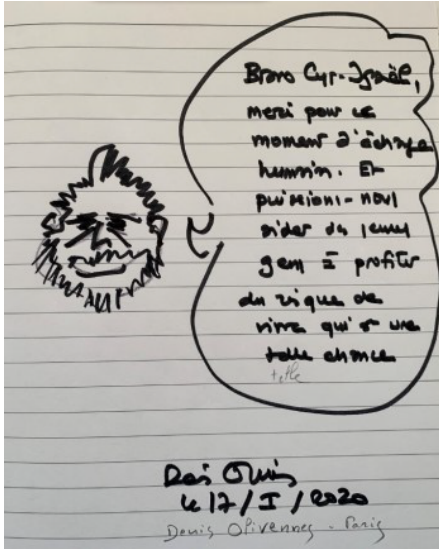 Bravo Cyr-Israël,
merci pour ce
moment d'échange
humain. Et
puissions-nous
aider des jeunes
gens à profiter
du risque de
vivre qui est une
telle chance
telle
Denis Olivi
le 17/I/2020
Denis Olivennes - Paris